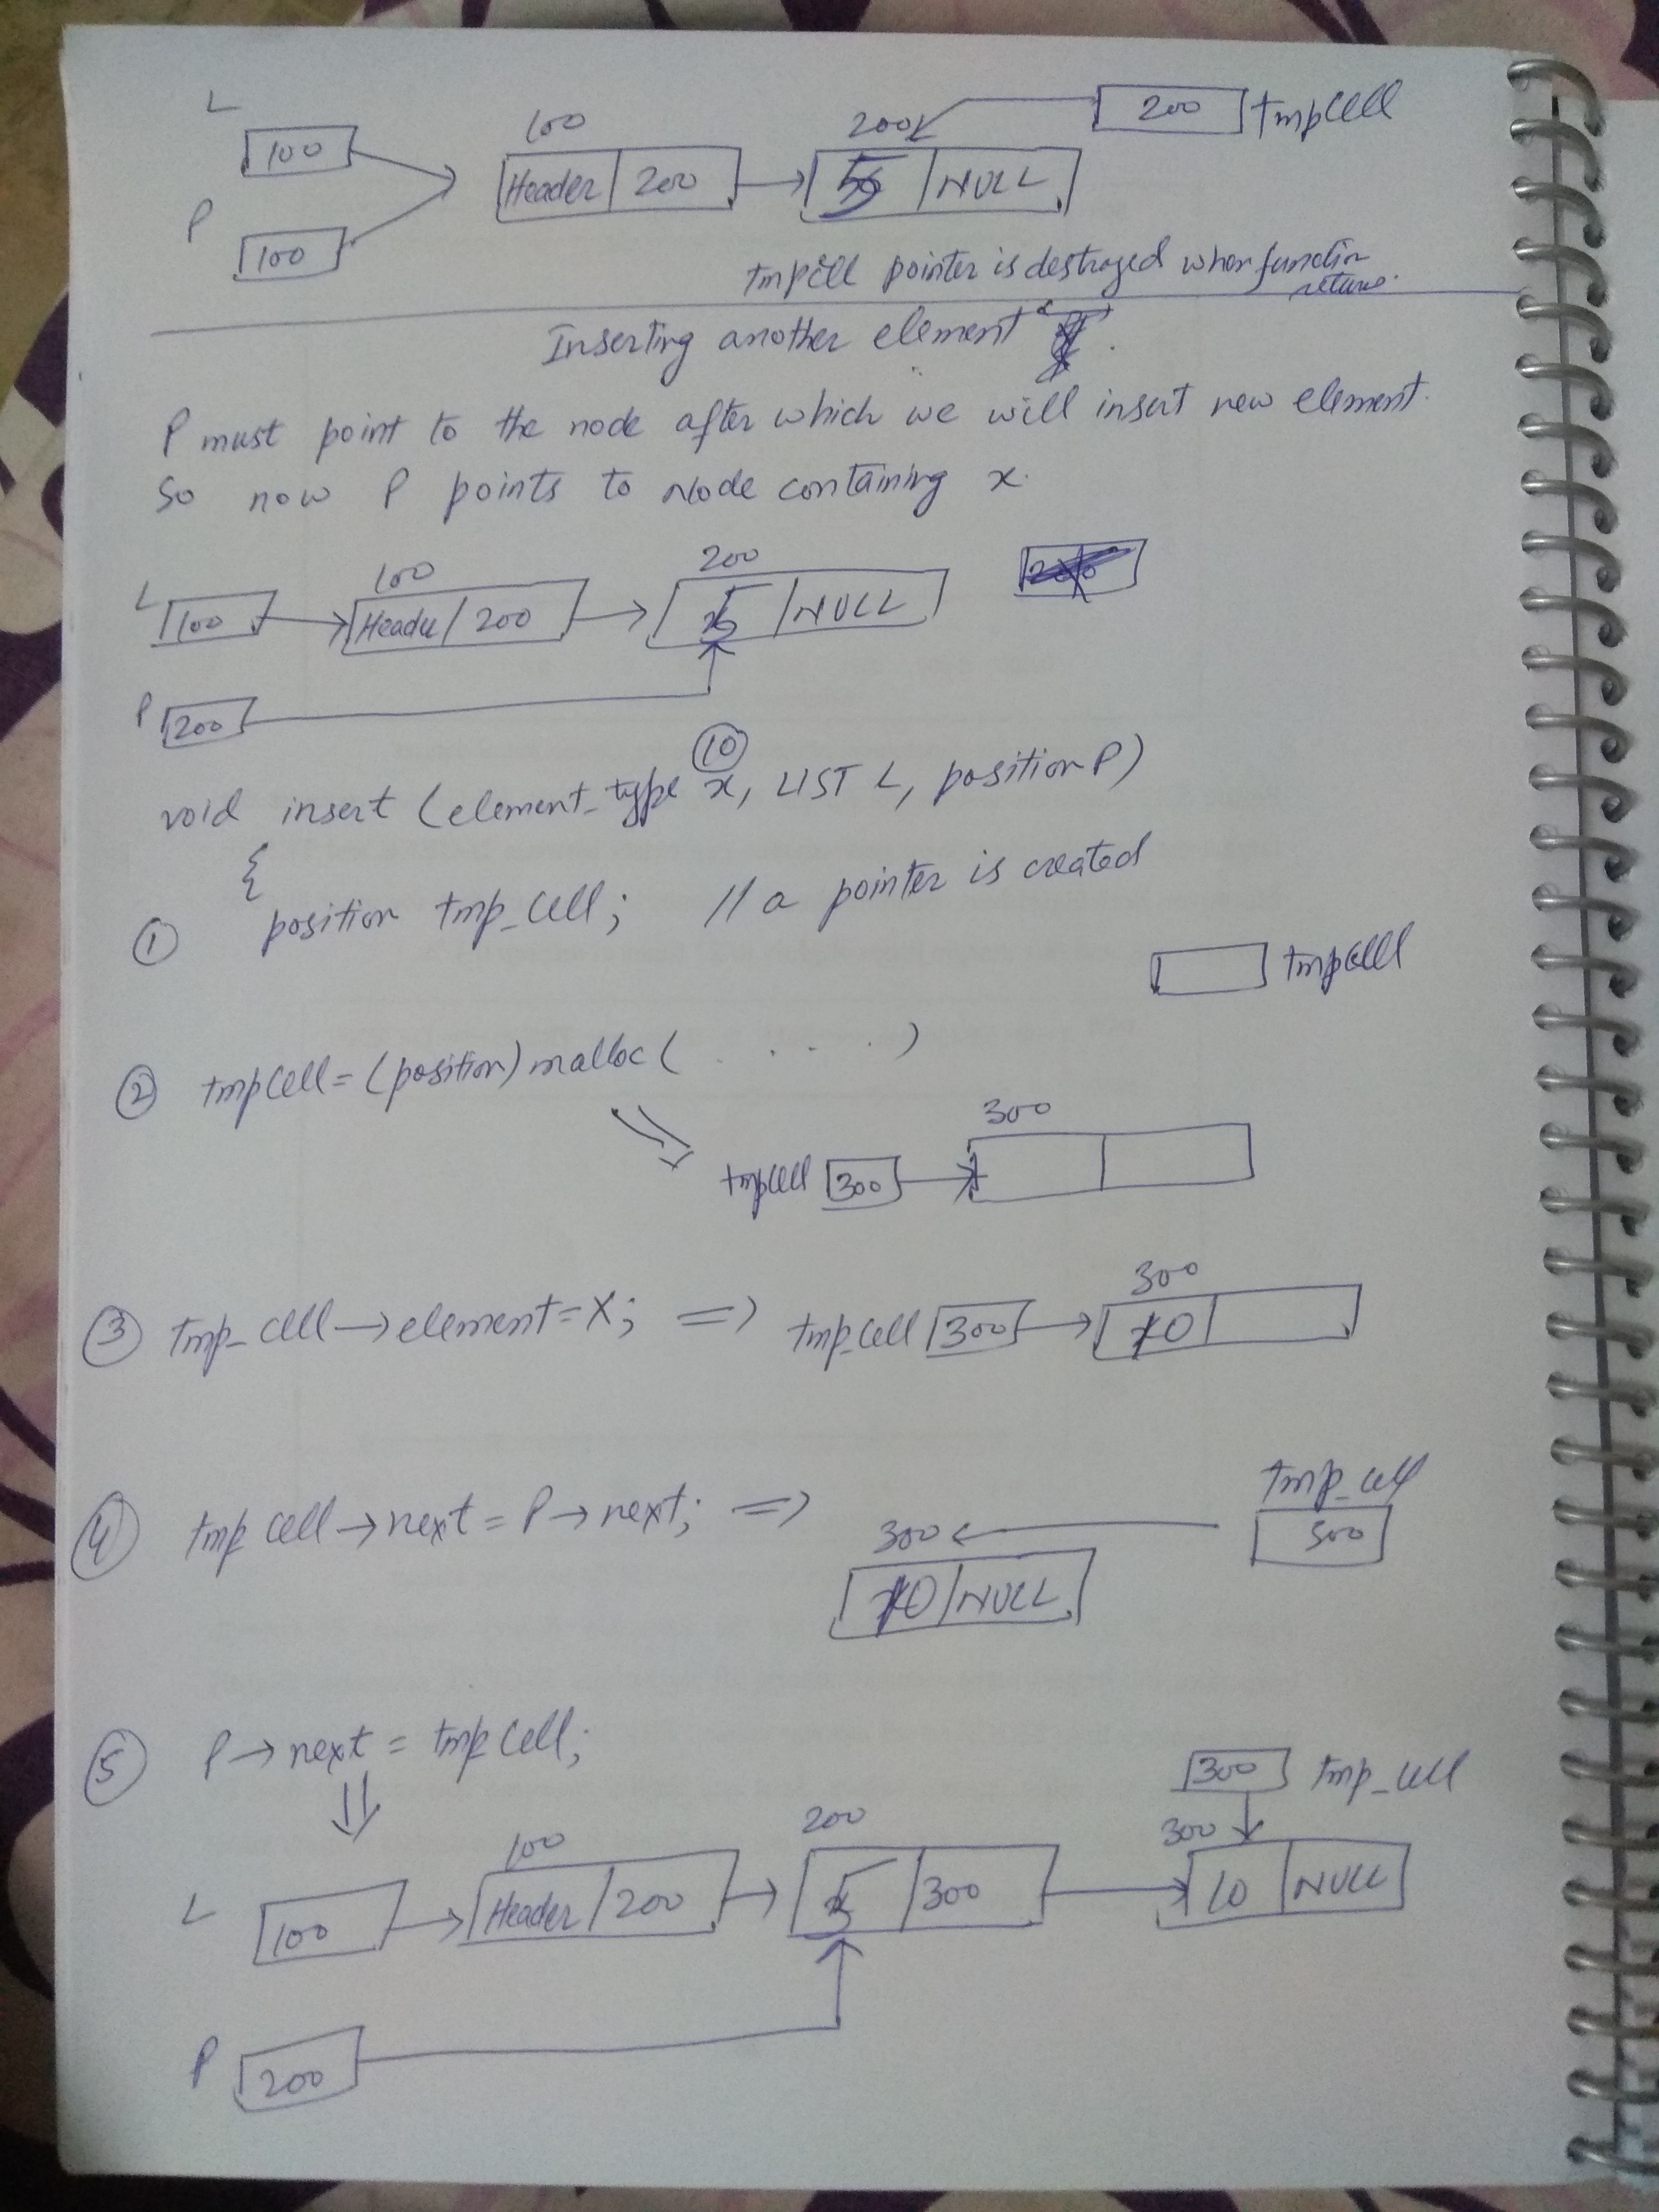 L
100
100
Header 200
200
5 NULL
200 tmpCell
P
100
tmpCell pointer is destroyed when function
returns.
Inserting another element
P must point to the node after which we will insert new element.
So now P points to Node containing x.
L
100
100
Header 200
200
5 NULL
P
200
10
void insert (element_type x, LIST L, position P)
{
① position tmp_cell; // a pointer is created
tmpcell
② tmpCell = (position) malloc ( . . . . )
300
tmpCell 300
③ tmp_cell → element = X; => tmp_cell 300
300
10
④ tmp cell → next = P → next; =>
tmp_cell
300
300
10 NULL
⑤ P → next = tmp Cell;
300 tmp_cell
L
100
100
Header 200
200
5 300
300
10 NULL
P
200